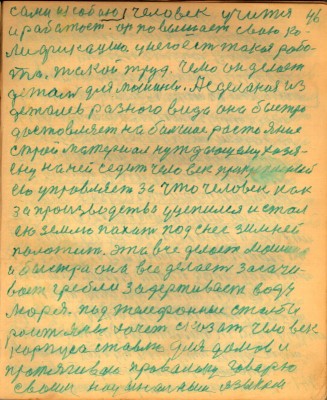 сами из собою, человек учится 46
и работает. он повышает свою ко-
лификацию у него есть такая рабо-
та, такой труд. чего он делает
детали для машины. А сделаная из
деталей разного вида она быстро
доставляет на большие растояние
строй материал нуждающему хозя-
ену на ней седит человек
ею управляет за что человек как
за производства уцепился и стал
ею землю пахать под снег зимней
полотит. эта все делает машина
и быстра она все делает засачи-
вает гребли задерживает воду
моря. под телефонные столби
роит ямы хочет сказат человек
корпуса ставлю для домов и
протягиваю провалоку говорю
своим научным языком